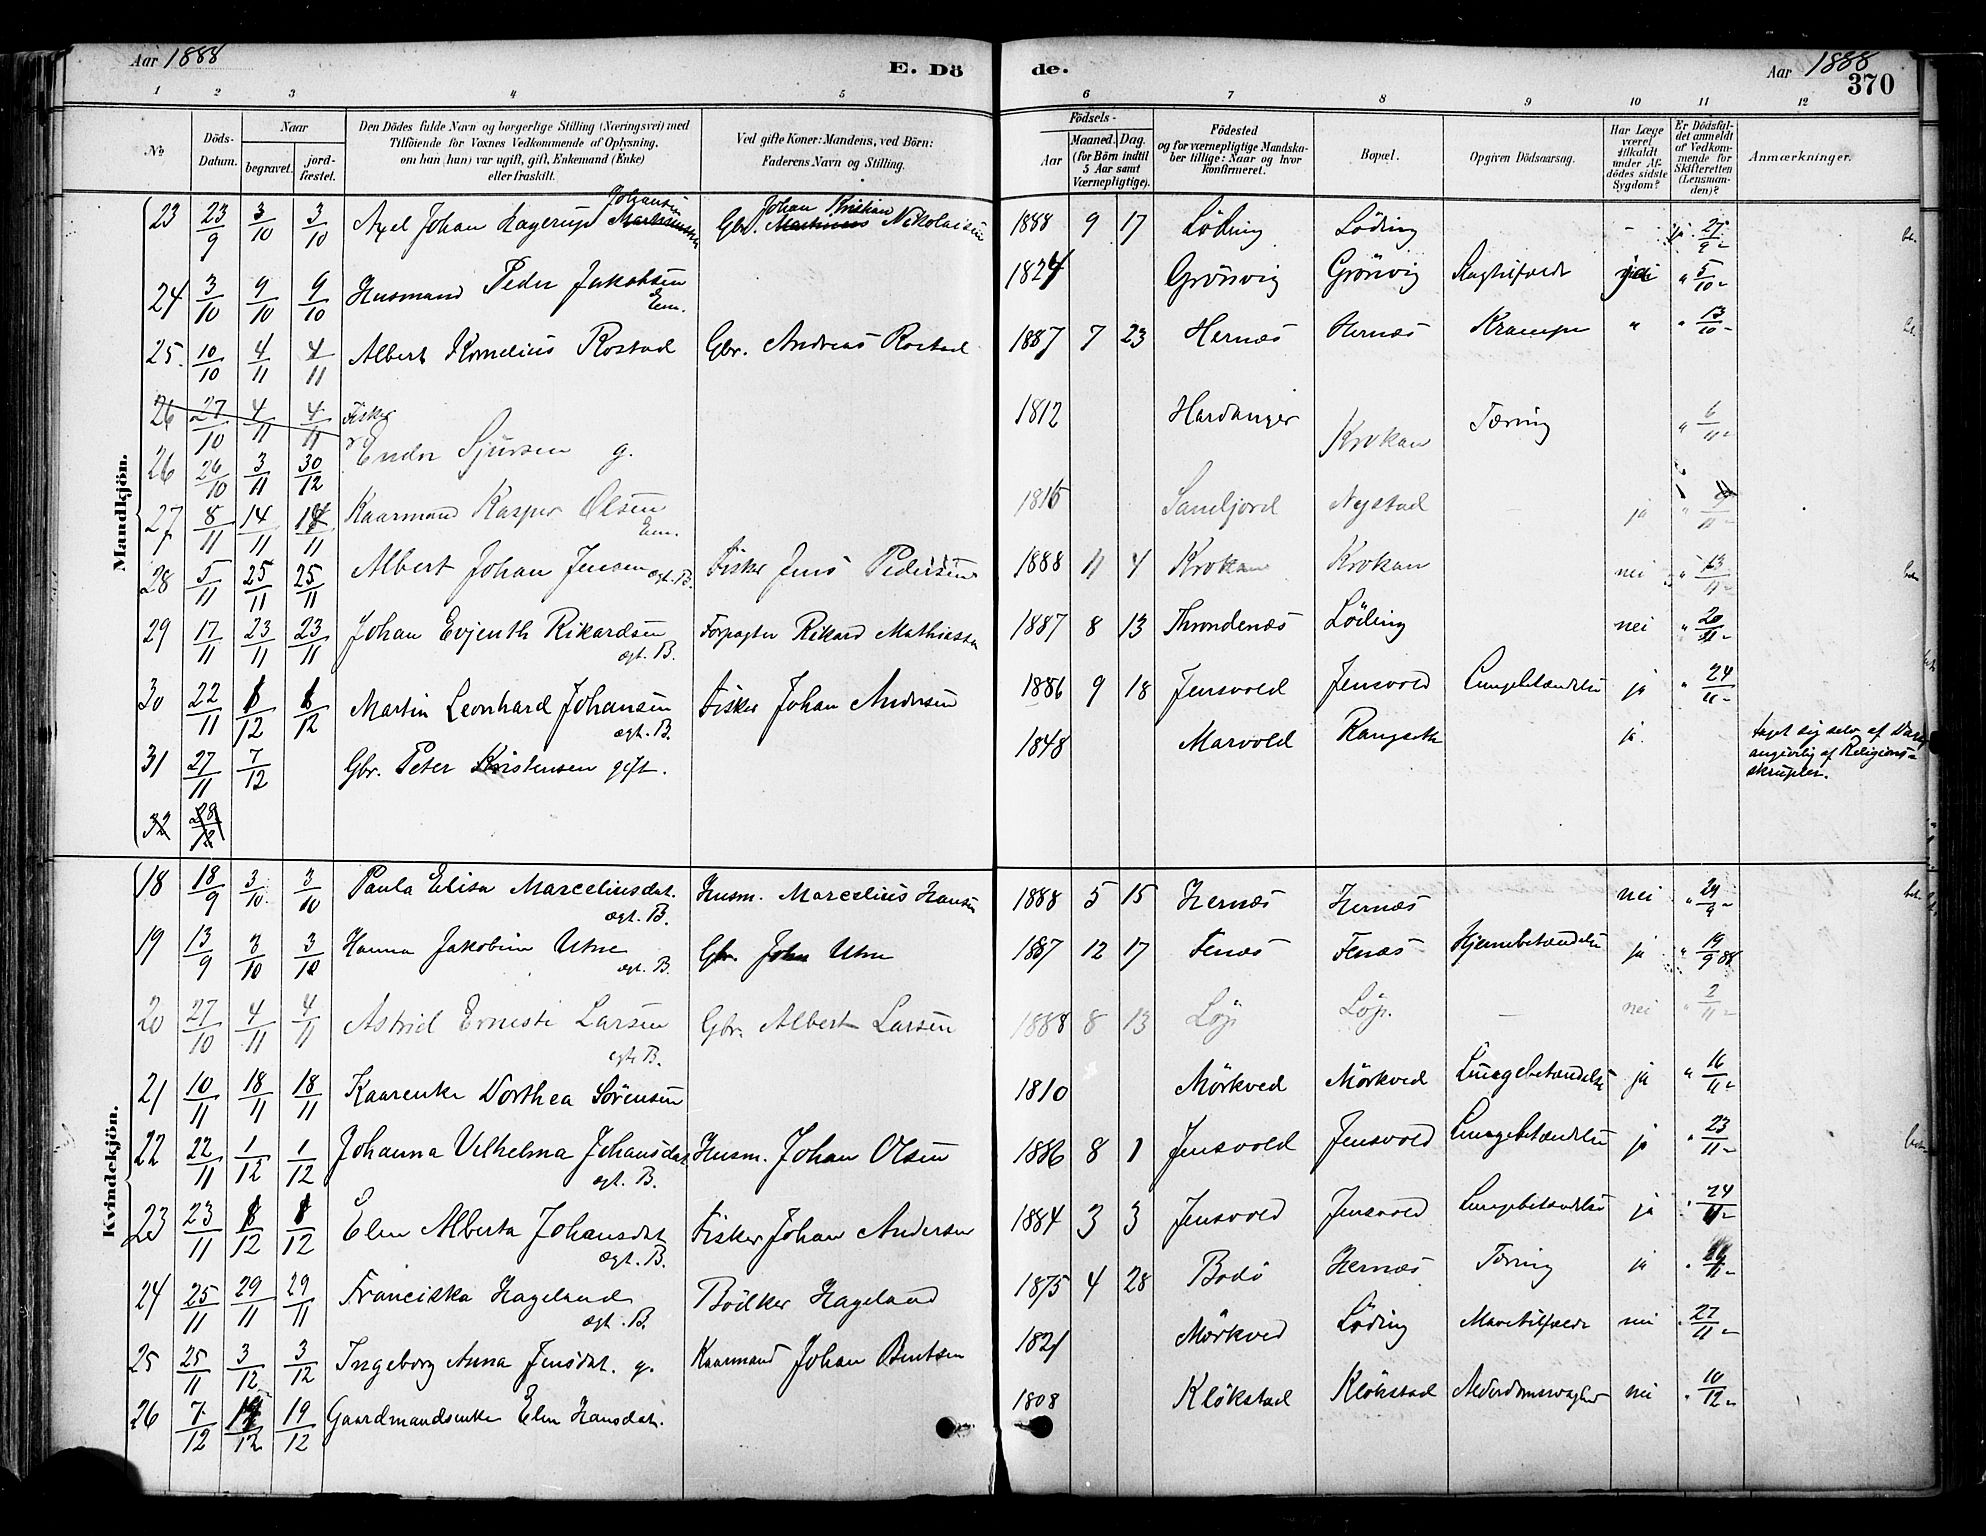 Aar 1888
E. Dö
de.
Aar 1888
370
1 2 3 4 5 6 7 8 9 10 11 12
No.
Döds-Datum.
Naar
begravet.
jord-fæstet.
Den Dödes fulde Navn og borgerlige Stilling (Næringsvei) med
Tilföiende for Voxnes Vedkommende af Oplysning,
om han (hun) var ugift, gift, Enkemand (Enke)
eller fraskilt.
Ved gifte Koner: Mandens, ved Börn:
Faderens Navn og Stilling.
Födsels-
Aar
Maaned. Dag.
(for Börn indtil
5 Aar samt
Værnepligtige).
Födested
og for værnepligtige Mandska-
ber tillige: Naar og hvor
konfirmeret.
Bopæl.
Opgiven Dödsaarsag.
Har Læge
været
tilkaldt
under Af-
dödes sidste
Sygdom?
Er Dödsfal-
det anmeldt
af Vedkom-
mende for
Skifteretten
(Lensman-
den)?
Anmærkninger.
Mandkjön.
23 23/9 3/10 3/10 Axel Johan Lagerup Johansen Gbr. Johan Kristian Nikolaisen 1888 9 17 Löding Löding - ja 27/9
24 3/10 9/10 9/10 Husmand Peder Jakobsen Em. 1824 Grönvig Grönvig " 5/10
25. 10/10 4/11 4/11 Albert Kornelius Rostad Gbr. Andreas Rostad 1887 7 23 Hernæs Hernæs Krampe " " 13/10
26 27/10 4/11 4/11 Fisker
26 26/10 3/11 30/12 Endre Sjursen g. 1812 Hardanger Krokan Tæring " 6/11
27 8/11 14/11 14/11 Kaarmand Kasper Olsen Em. 1815 Nystad - ja
28 5/11 25/11 25/11 Albert Johan Jensen ægt. B. Fisker Jens Pedersen 1888 11 4 Krokan Krokan nei " 13/11
29 17/11 23/11 23/11 Johan Evjenth Rikardsen ægt. B. Forpagter Rikard Mathiassen 1887 8 13 Throndenæs Löding nei " 20/11
30 22/11 1/12 1/12 Martin Leonhard Johansen ægt. B. Fisker Johan Andersen 1886 9 18 Jensvold Jensvold Lungebetændelse ja " 24/11
31 27/11 7/12 Gbr. Peter Kristensen gift. 1848 Marvold ja. taget sig selv af Dage
angivelig af Religions-
skrupler.
32 28/12
Kvindekjön.
18 18/9 3/10 3/10 Paula Elisa Marceliusdat. ægt. B. Husm. Marcelius Hansen 1888 5 15 Hernæs Hernæs nei " 24/9
19 13/9 3/10 3/10 Hanna Jakobine Utne ægt. B. Gbr. John Utne 1887 12 17 Fenæs Fenæs Hjernebetændelse ja " 19/9 88
20 27/10 4/11 4/11 Astrid Ernesti Larsen ægt. B. Gbr. Albert Larsen 1888 8 13 Löp Löp. - nei " 2/11
21 10/11 18/11 18/11 Kaarenke Dorthea Sörensen 1810 Mörkved Mörkved Lungebetændelse ja " 16/11
22 22/11 1/12 1/12 Johanna Vilhelma Johansdat. ægt. B. Husm. Johan Olsen 1886 8 1 Jensvold Jensvold Lungebetændelse ja " 23/11
23 23/11 1/12 1/12 Elen Alberta Johansdat ægt. B. Fisker Johan Andersen 1884 3 3 Jensvold Jensvold Lungebetændelse ja " 24/11
24 25/11 29/11 29/11 Franciska Hageland ægt. B. Bödker Hageland 1875 4 28 Bodö Hernæs Tæring ja
25 25/11 3/12 3/12 Ingeborg Anna Jensdat. g. Kaarmand Johan Bentsen 1821 Mörkved Löding Mavetilfælde nei " 27/11
26 7/12 19/12 19/12 Gaardmandsenke Elen Hansdat. 1808 Klökstad Klökstad Alderdomssvaghed nei " 10/12